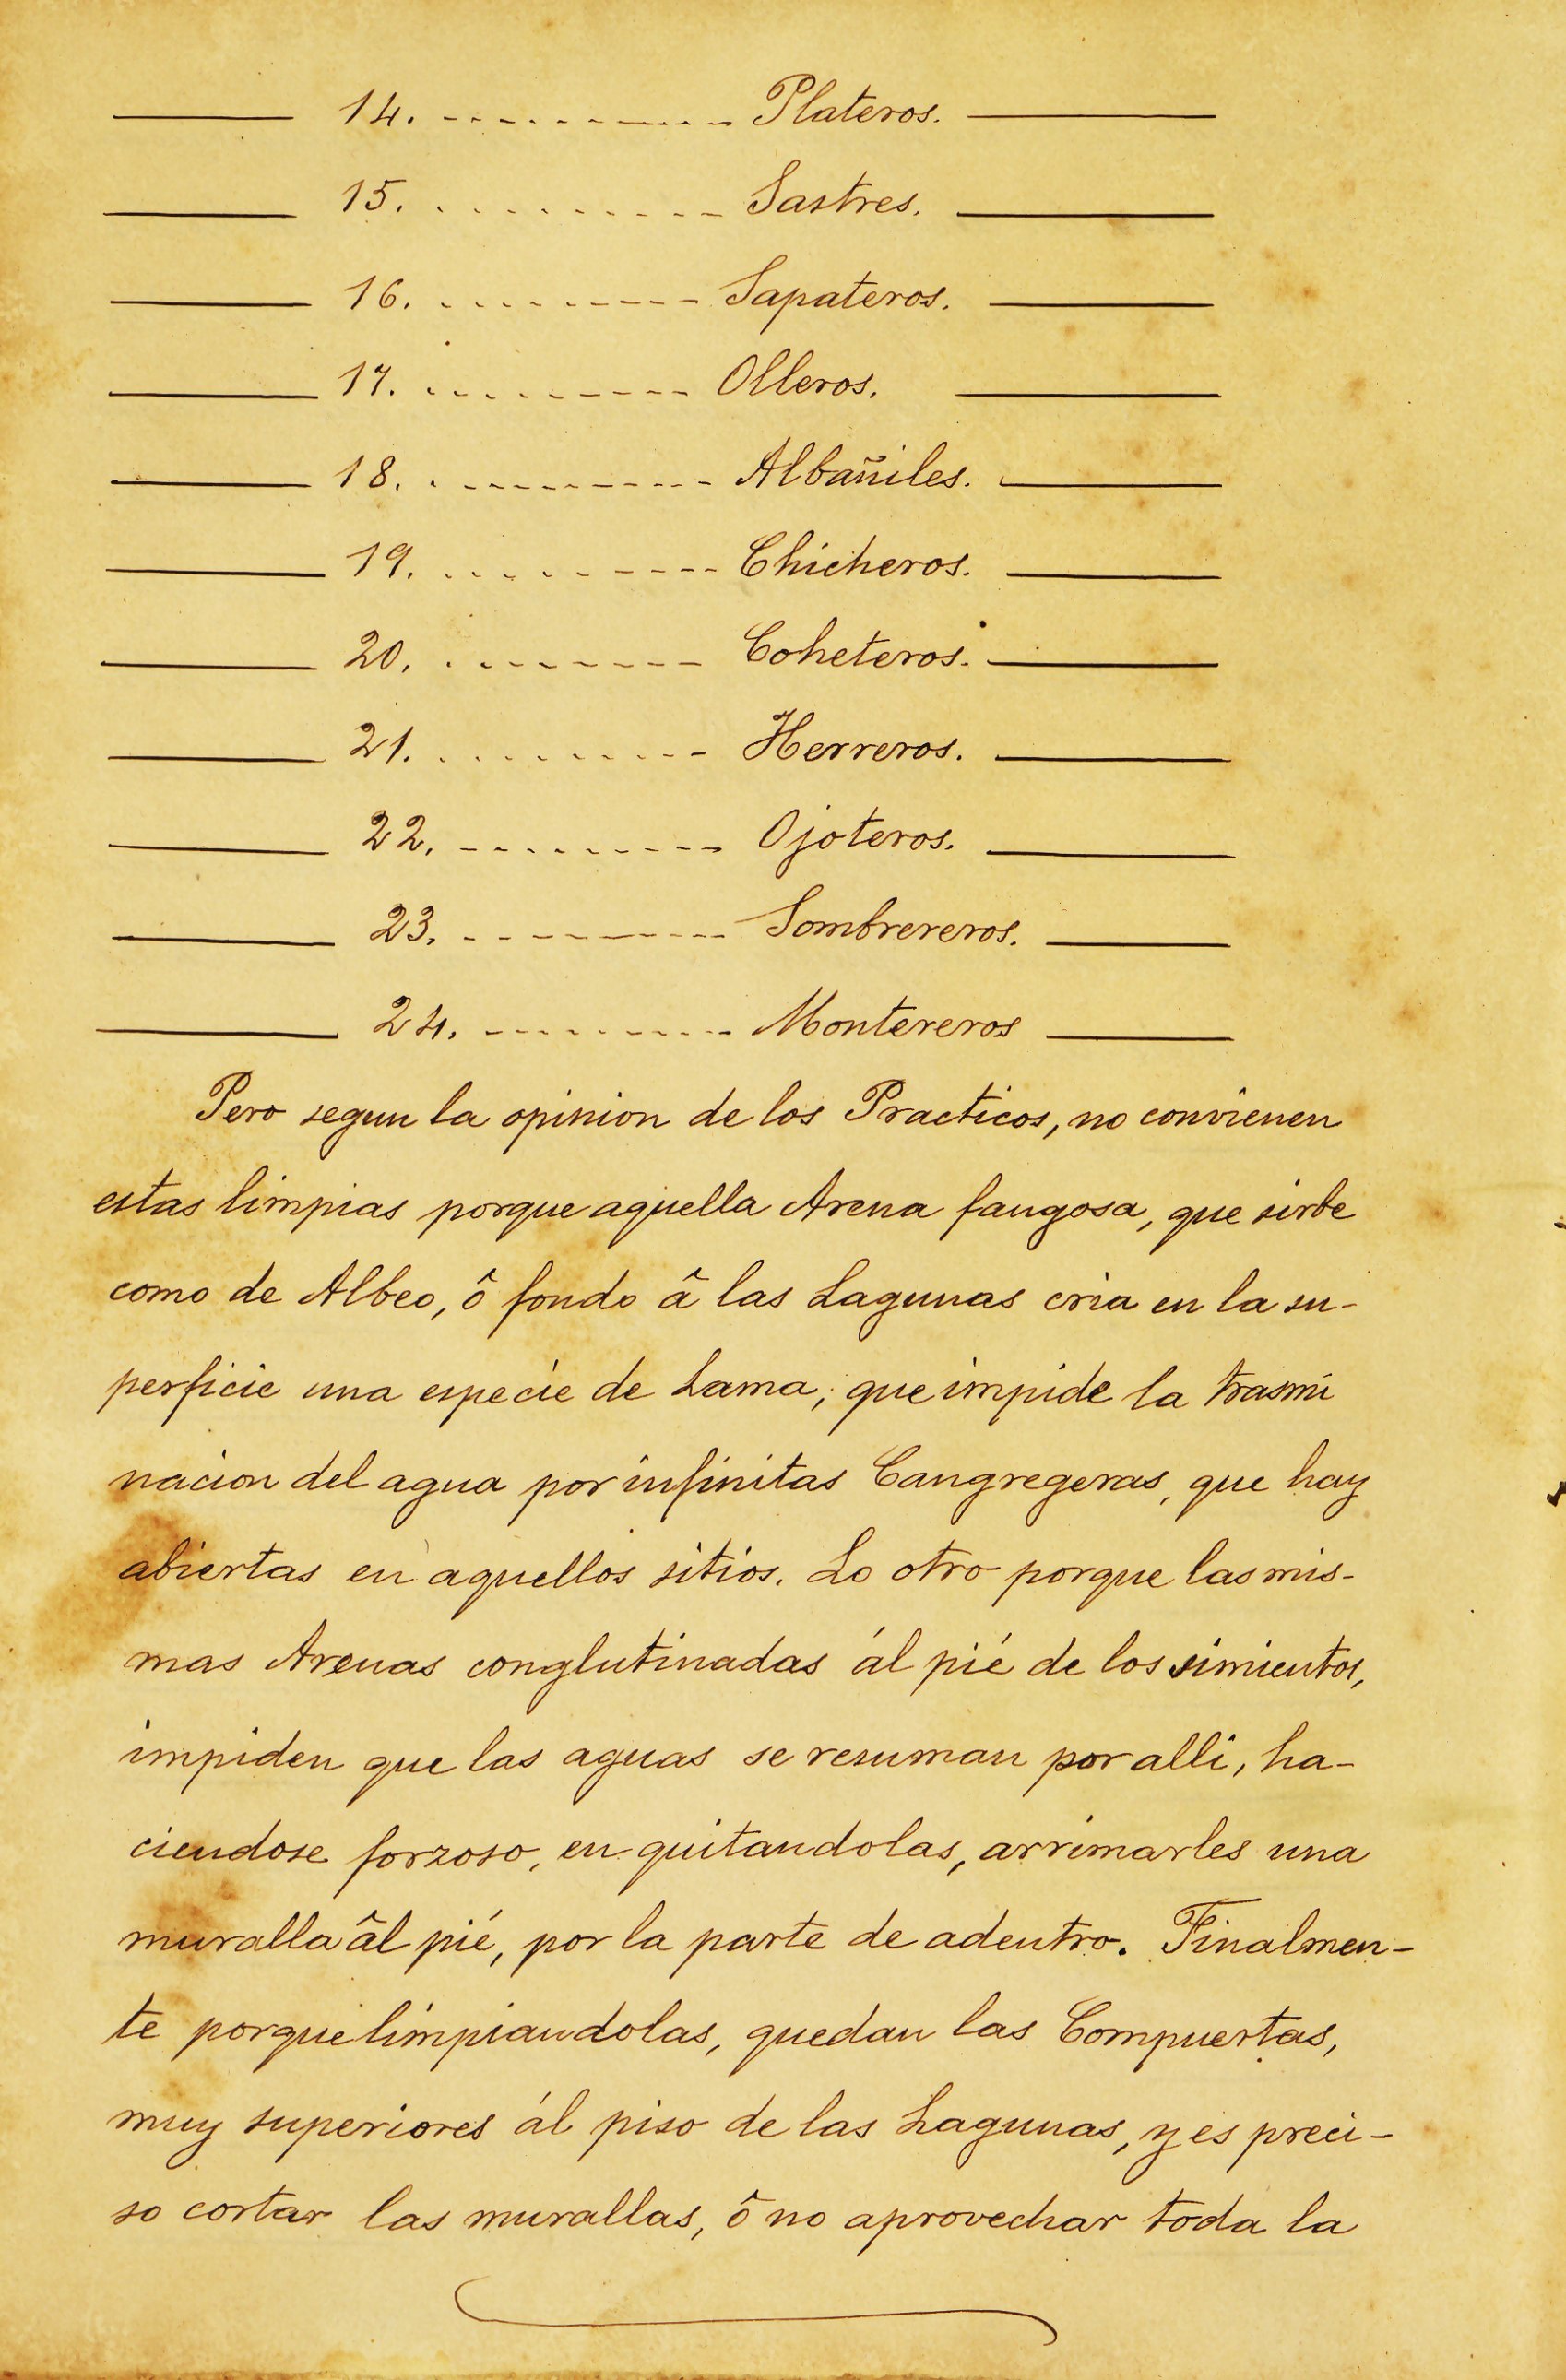 14. - - - - - - - - - - Plateros.
15. . . . . . . . . - - - Sastres.
16. . . . . . - - - - Sapateros.
17. . . . . . - - - - Olleros.
18. . - - - - - - - - - Albañiles.
19. . . . . . - - - - Chicheros.
20. . . - - - - - - Coheteros.
21. . . . . . . . . - Herreros.
22. - - - - - - - - - Ojoteros.
23. - - - - - - - - - Sombrereros.
24. - - - - - - - - - Montereros
Pero segun la opinion de los Practicos, no convienen
estas limpias porque aquella Arena fangosa, que sirbe
como de Albeo, ô fondo â las Lagunas cria en la su-
perficie una especie de Lama; que impide la trasmi
nacion del agua por infinitas Cangregeras, que hay
abiertas en aquellos sitios. Lo otro porque las mis-
mas Arenas conglutinadas ál pié de los simientos,
impiden que las aguas se resuman por alli, ha-
ciendose forzoso, en quitandolas, arrimarles una
muralla âl pié, por la parte de adentro. Finalmen-
te porque limpiandolas, quedan las Compuertas,
muy superiores ál piso de las Lagunas, y es preci-
so cortar las murallas, ô no aprovechar toda la